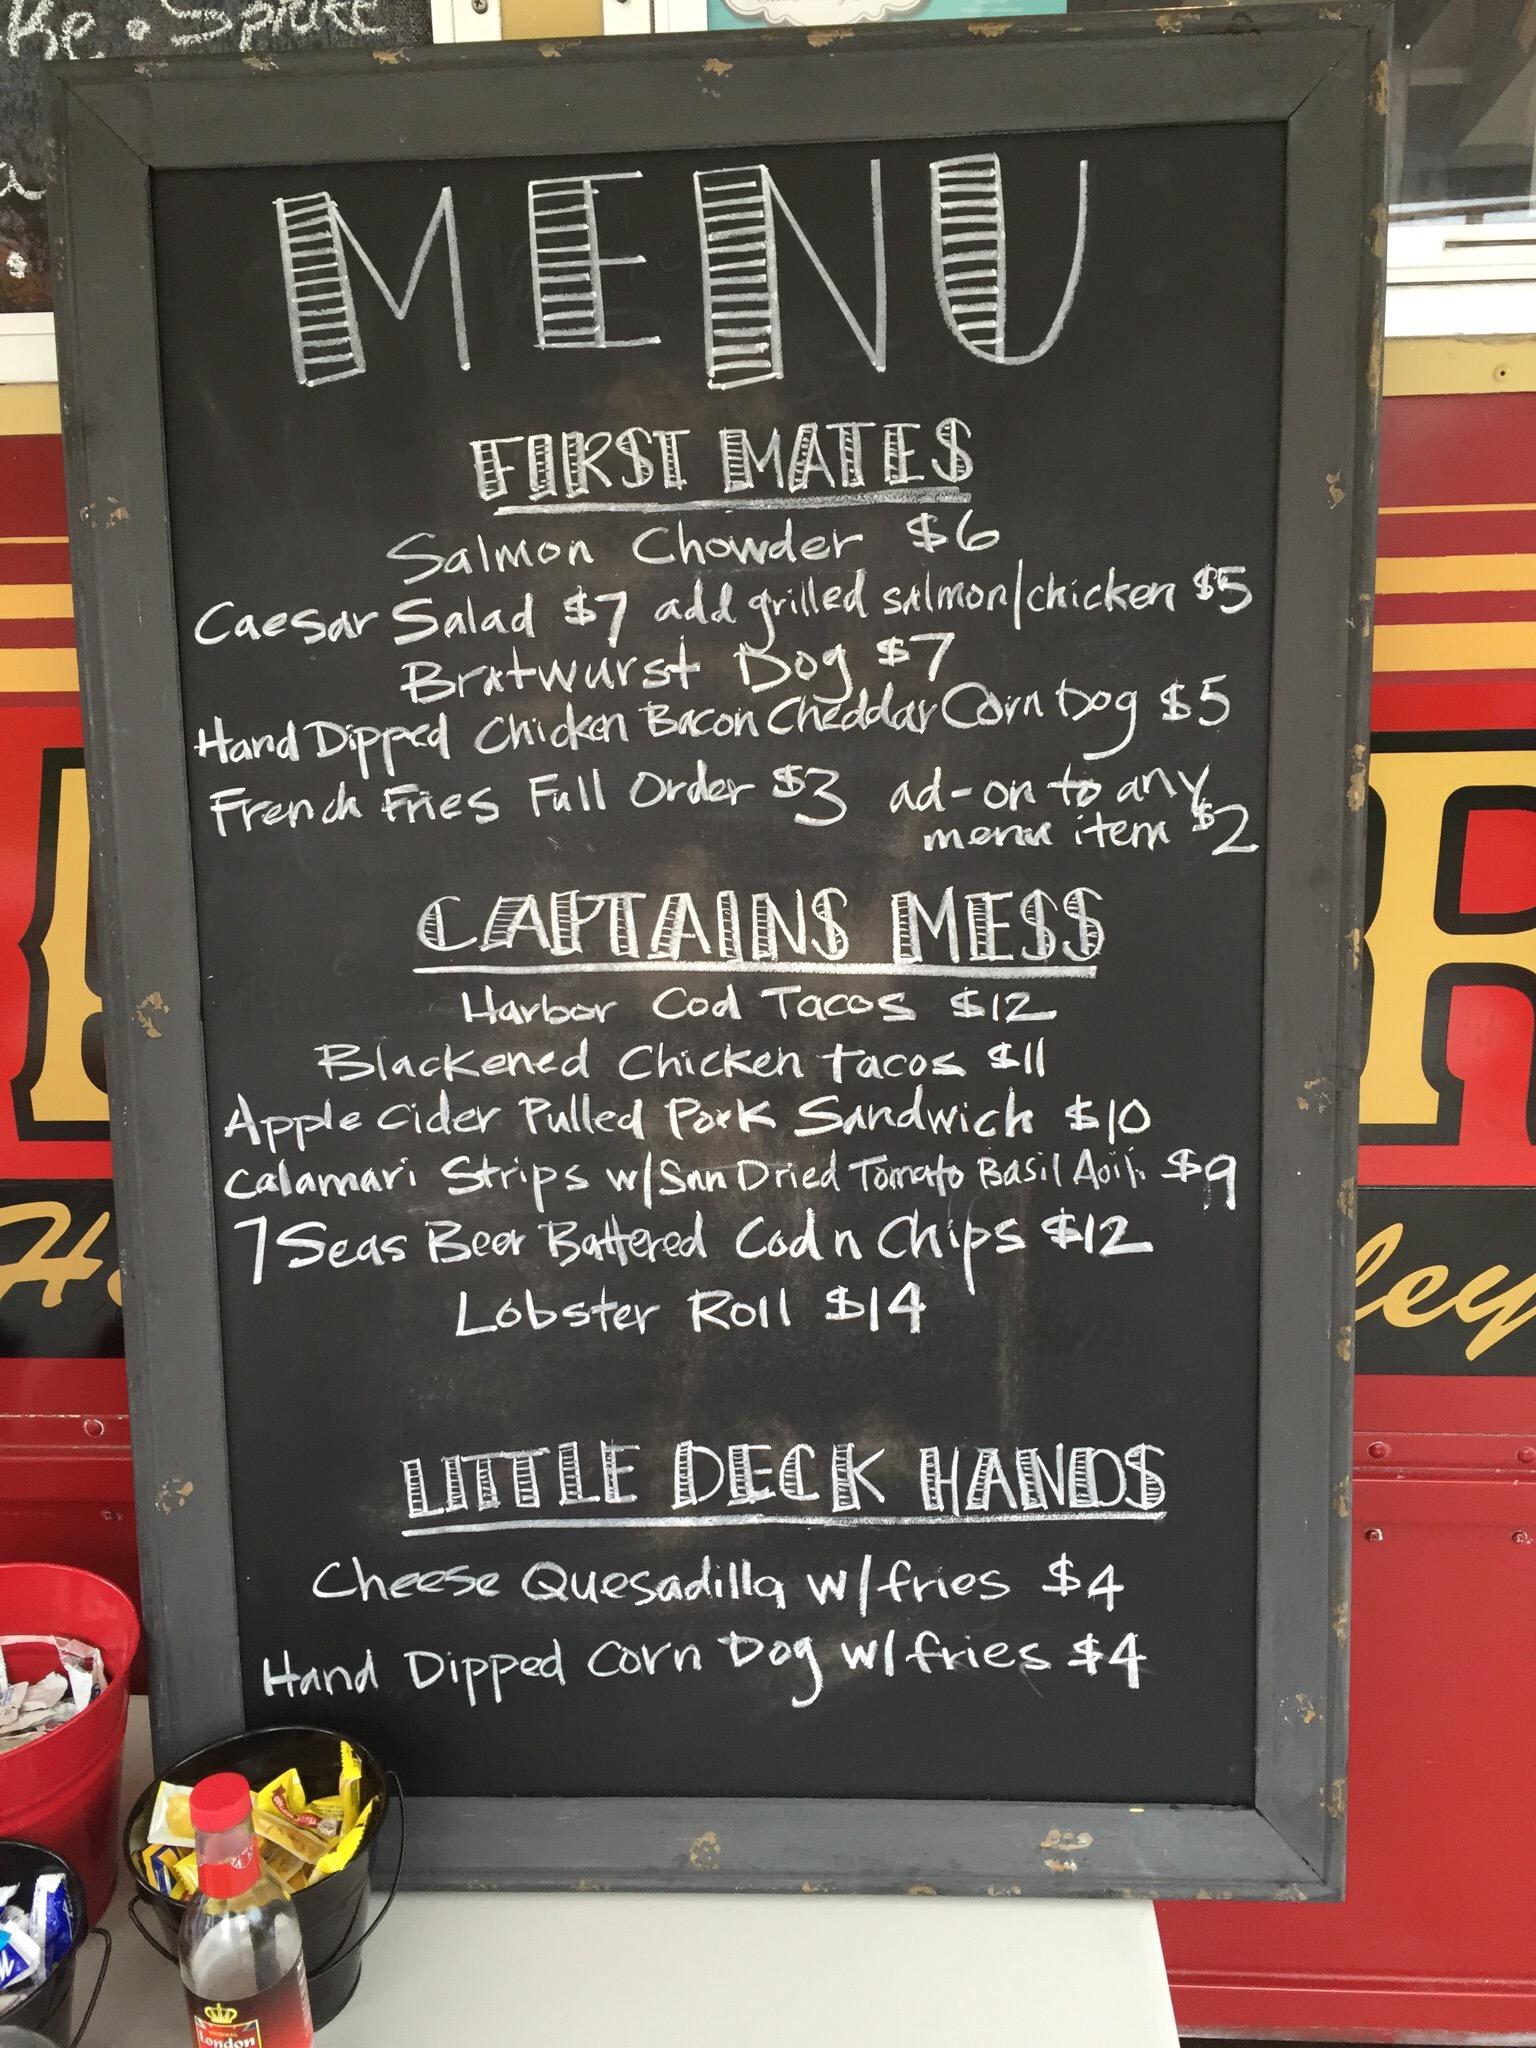 MENU
FIRST MATES
Salmon Chowder $6
Caesar Salad $7 add grilled salmon/chicken $5
Bratwurst Dog $7
Hand Dipped Chicken Bacon Cheddar Corn Dog $5
French Fries Full Order $3 ad-on to any
menu item $2
CAPTAINS MESS
Harbor Cod Tacos $12
Blackened Chicken tacos $11
Apple Cider Pulled Pork Sandwich $10
Calamari Strips w/Sun Dried Tomato Basil Aoili $9
7 Seas Beer Battered Cod n Chips $12
Lobster Roll $14
LITTLE DECK HANDS
Cheese Quesadilla w/fries $4
Hand Dipped Corn Dog w/fries $4
ORIGINAL
London
ley